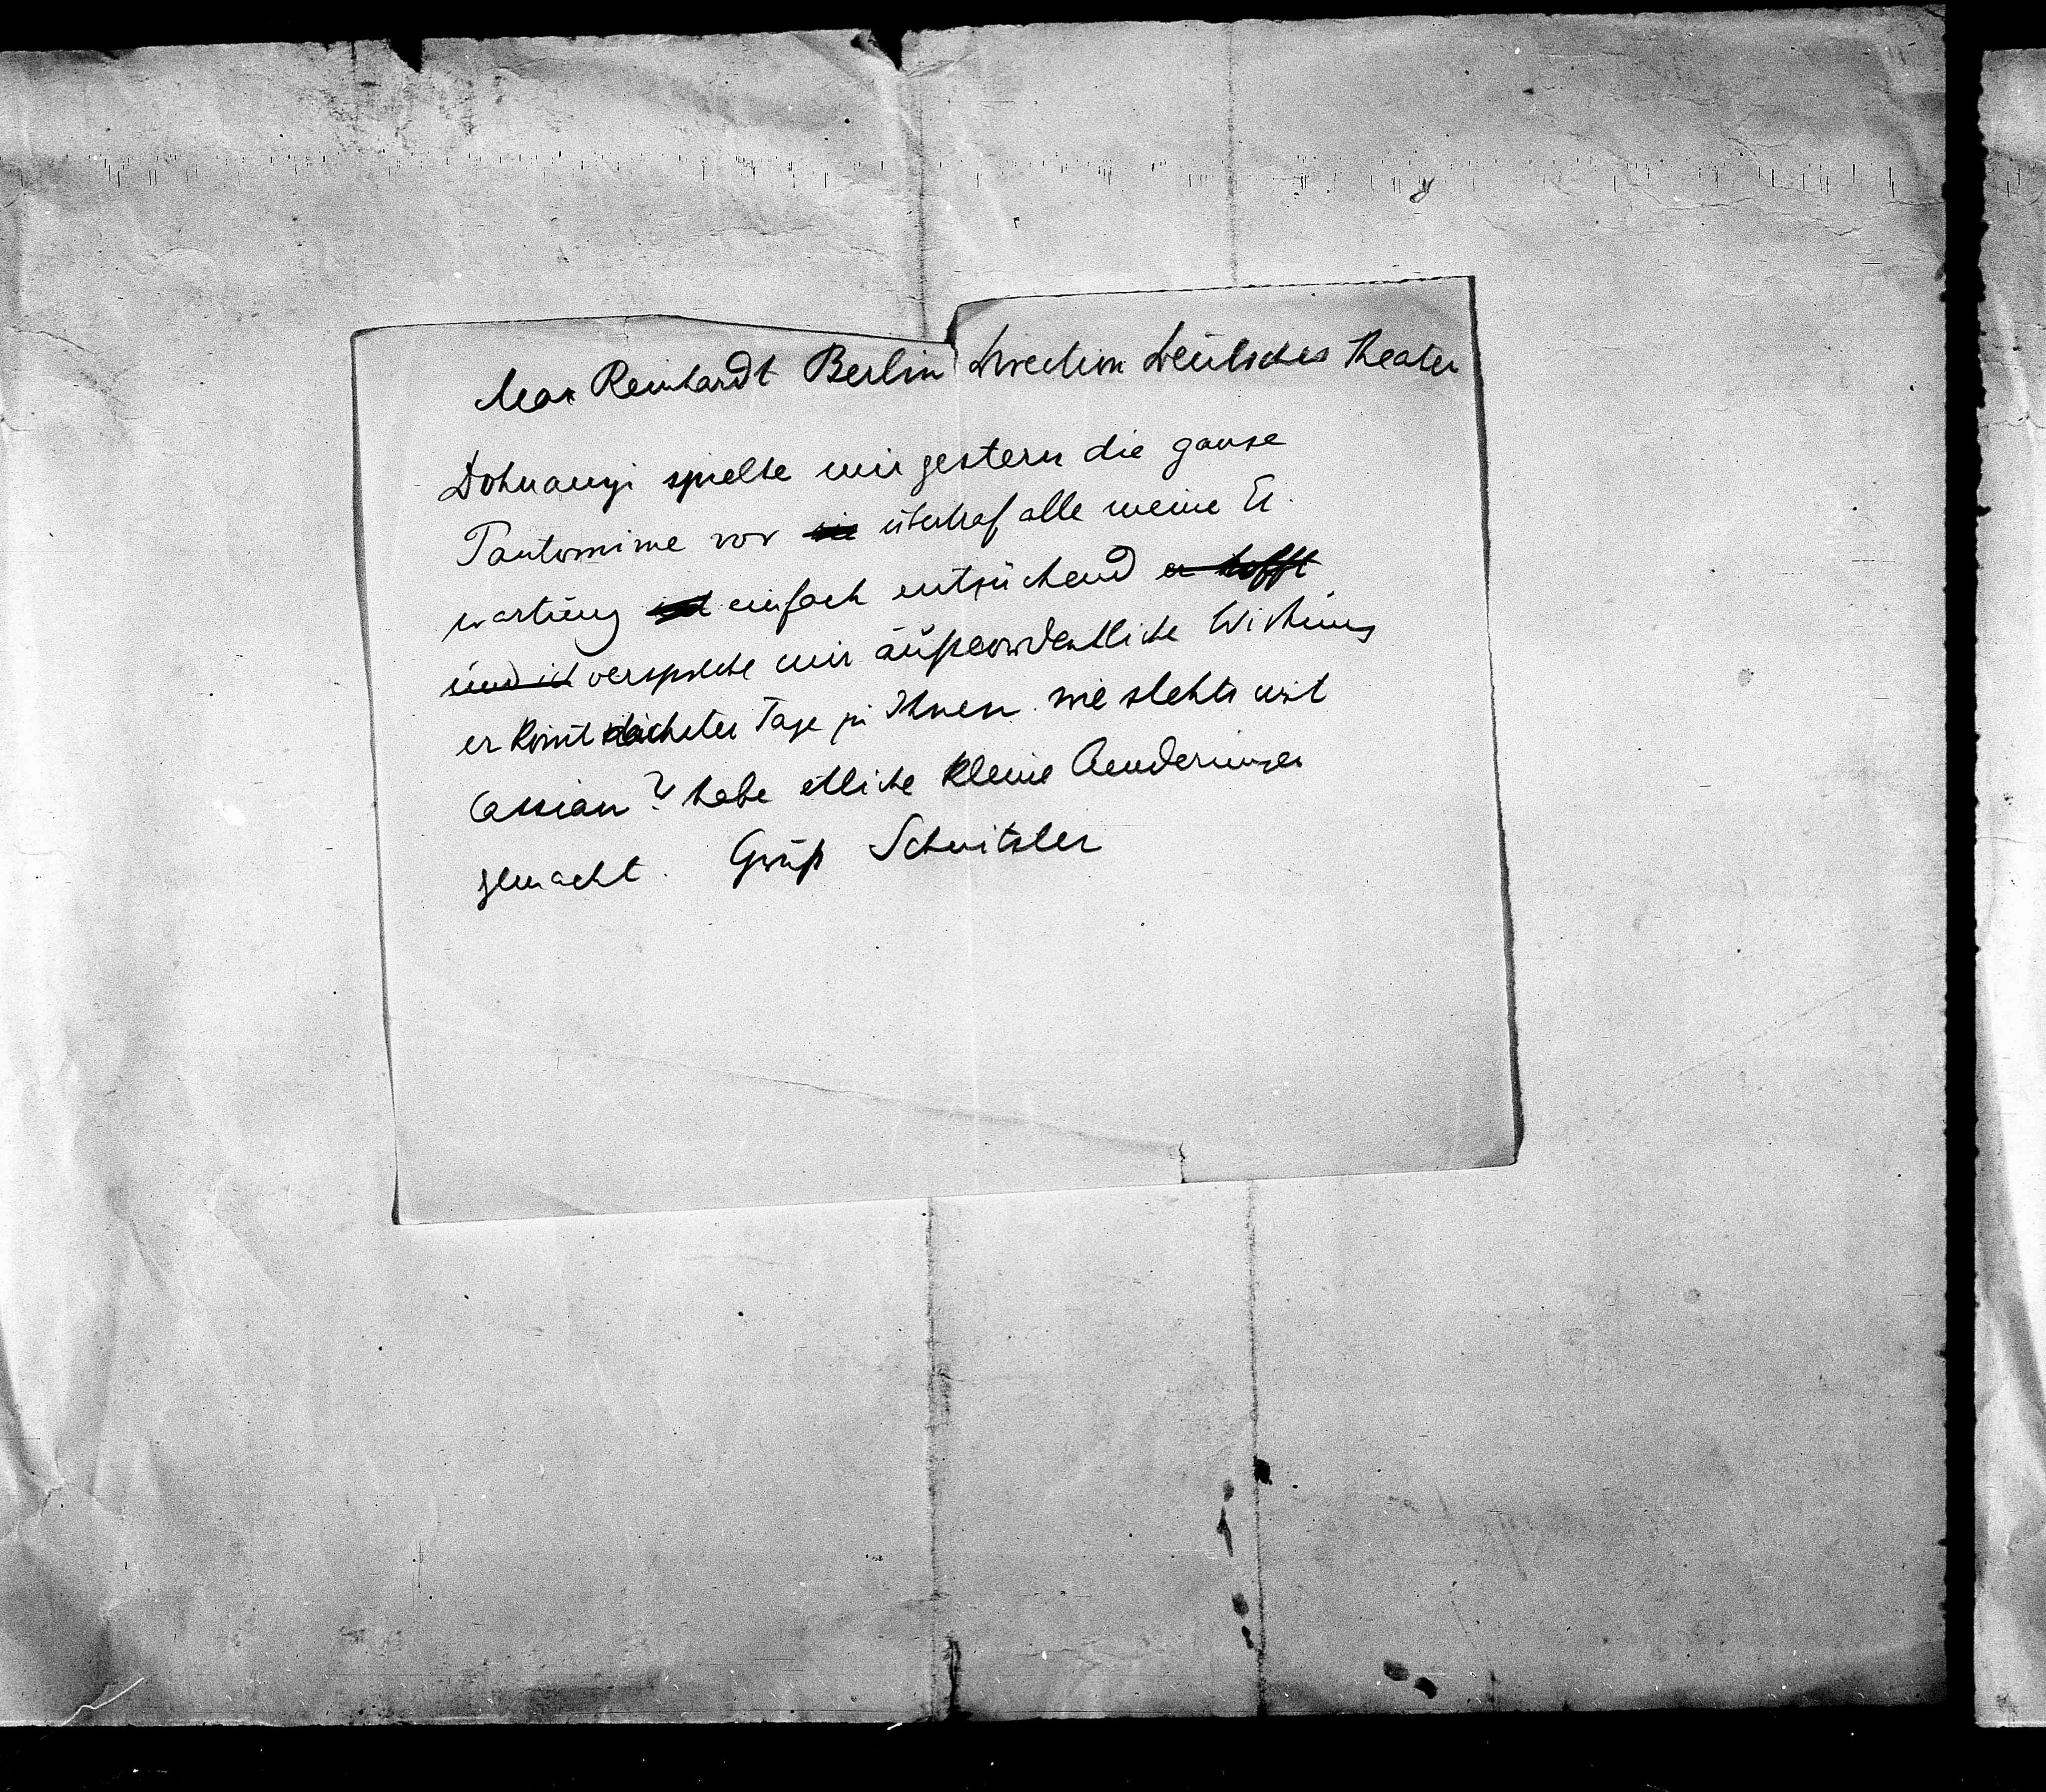 Max Reinhardt Berlin Direction Deutsches Theater
Dohnanyi spielte mir gestern die ganze
Pantomime vor sie übertraf alle meine Er
wartung ist einfach entzückend er hofft
und ich verspreche mir außerordentliche Wirkung
er komt nächster Tage zu Ihnen. wie stehts mit
Cassian? habe etliche kleine Aenderungen
gemacht. Gruß Schnitzler